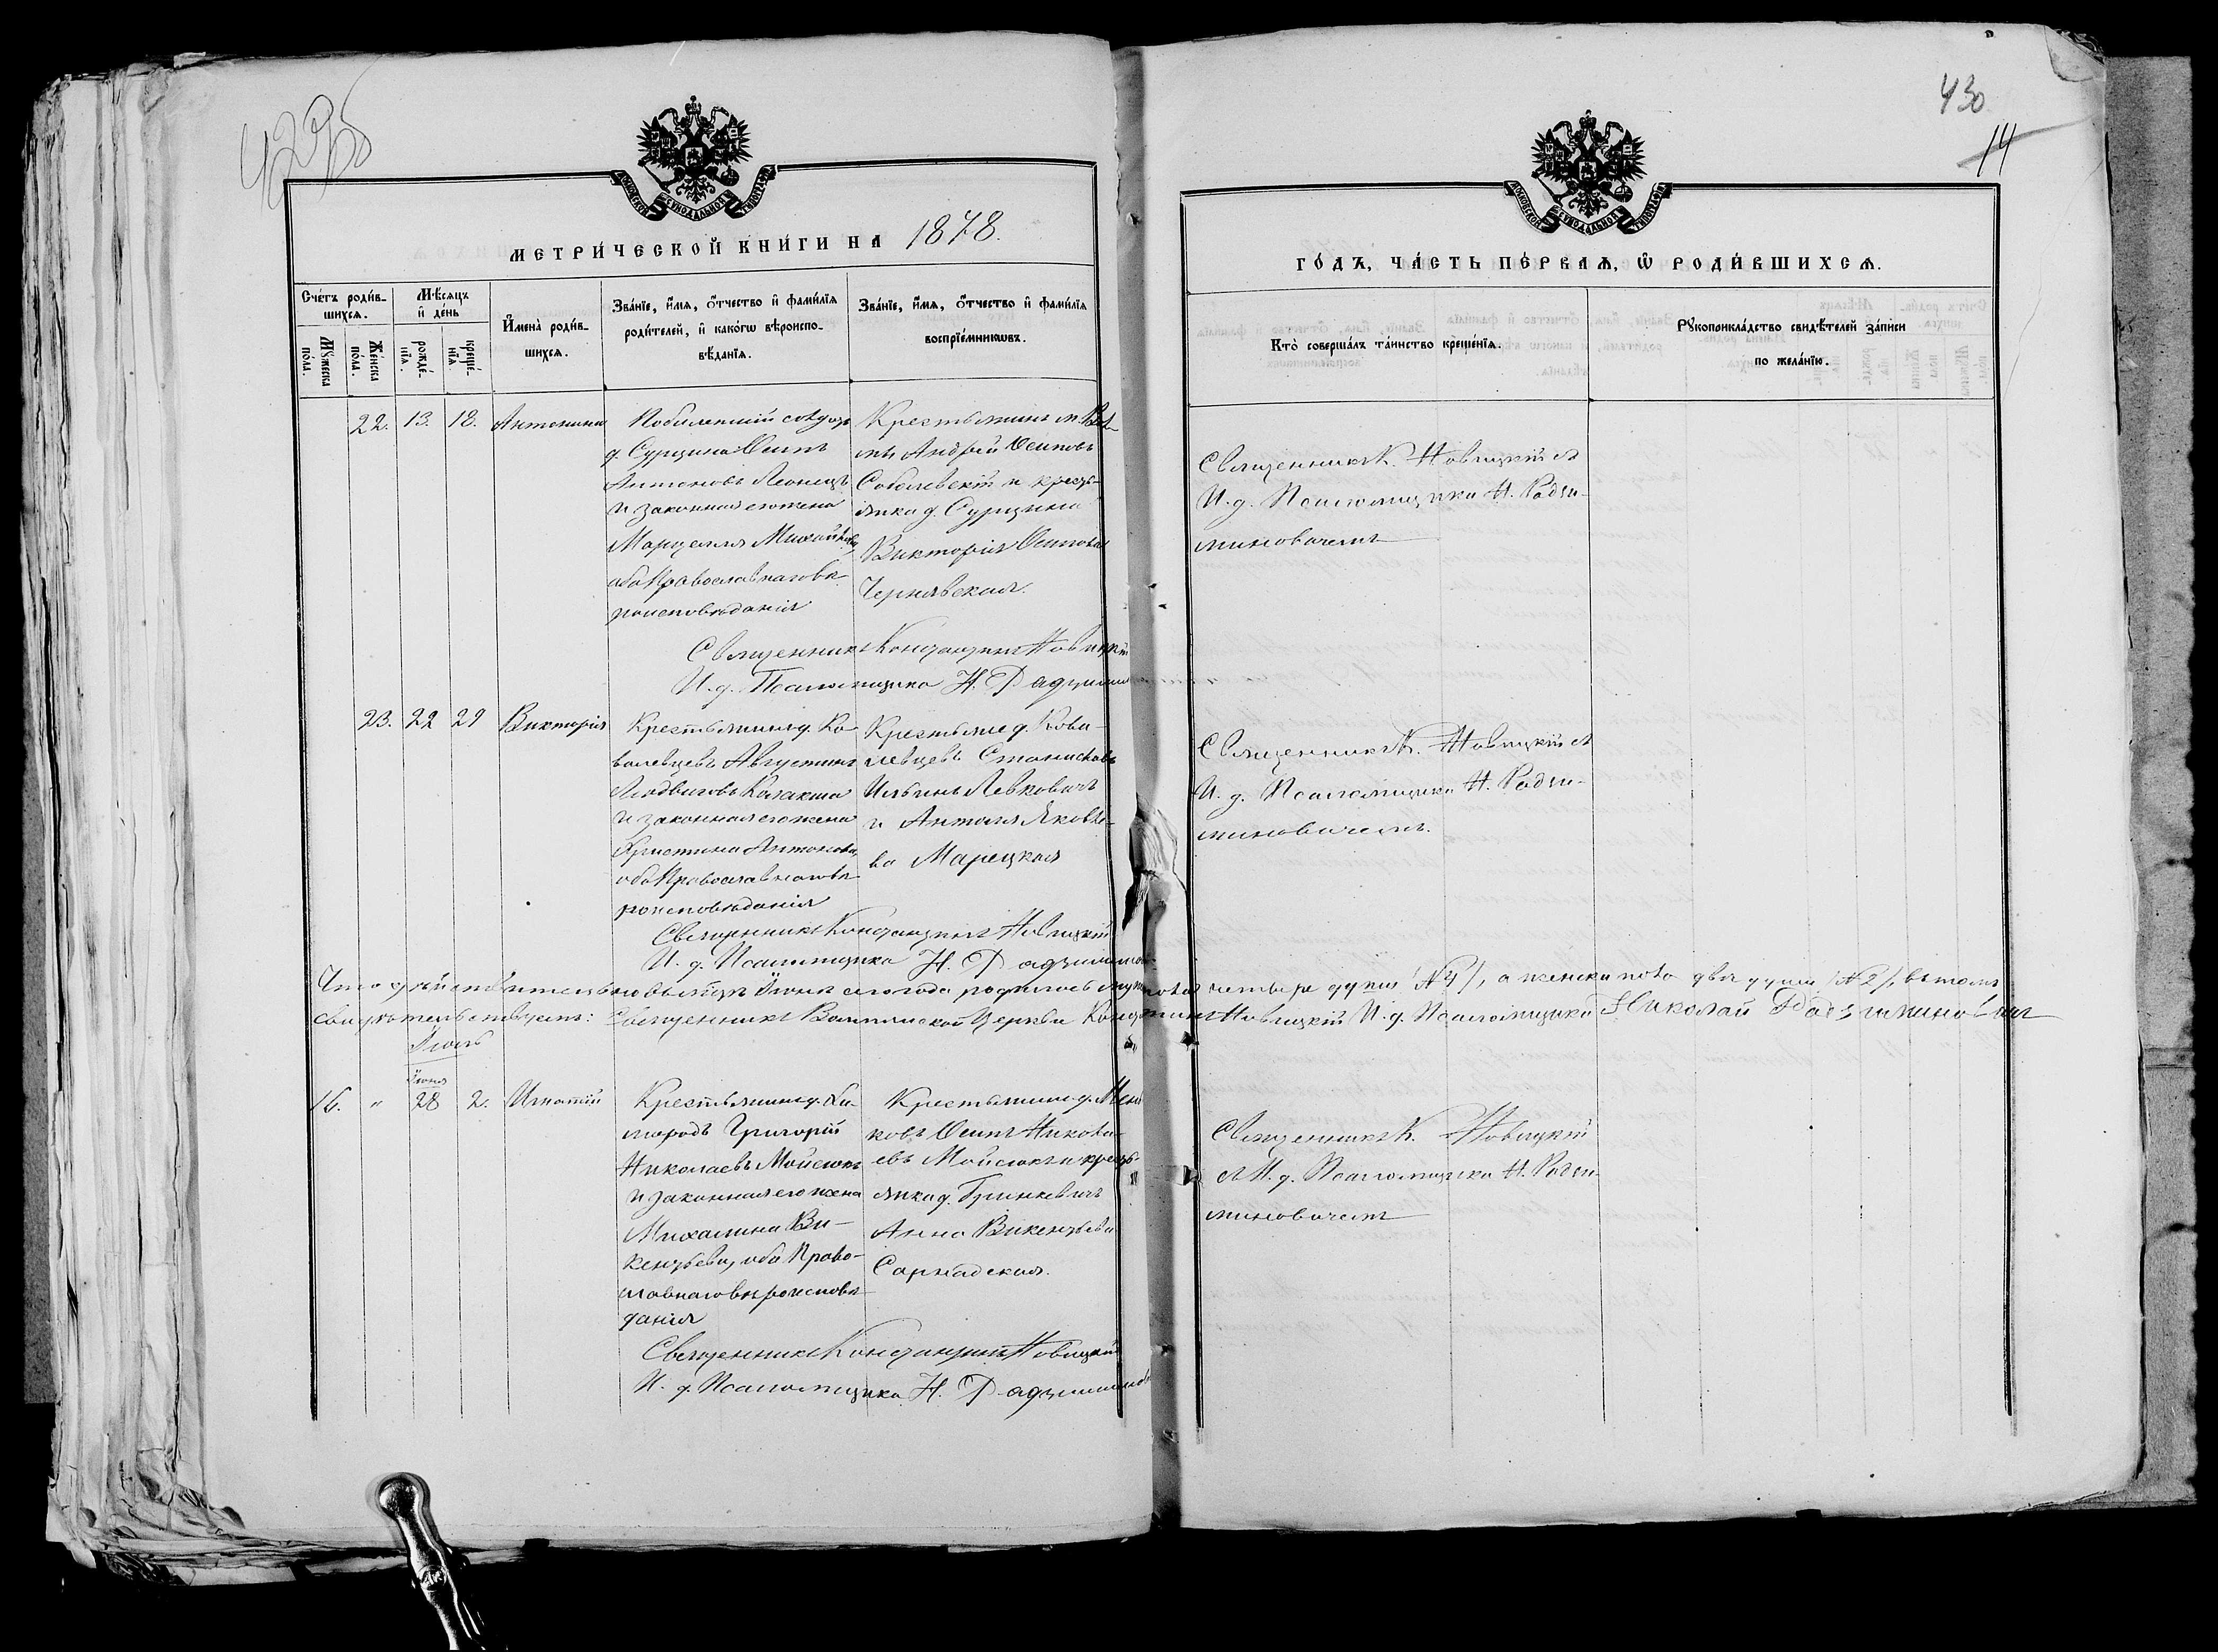 430
14
МОСКОВСКОЙ СѴНОДАЛЬНОЙ ТИПОГРАФІИ
МЕТРИ́ЧЕСКОЙ КНИ́ГИ НА 1878.
Сче́тъ роди́в-
шихсѧ.
Мꙋ́жеска
по́ла.
Же́нска
по́ла.
Мѣ́сѧцъ
и҆ де́нь
рожде́-
нїѧ.
креще́-
нїѧ.
И҆мена̀ роди́в-
шихсѧ.
Зва́нїе, и҆́мѧ, ѻ҆́тчество и҆ фами́лїѧ
роди́телей, и҆ како́гѡ вѣроиспо-
вѣ́данїѧ.
Зва́нїе, и҆́мѧ, ѻ҆́тчество и҆ фами́лїѧ
воспрїе́мникѡвъ.
22. 13. 18. Антонина
д. Сурщина Осипъ
Антоновъ Леонецъ
и законная его жена
Марцелля Михайлова
оба Православнаго вѣ-
роисповѣданія
Крестьянинъ
Андрей Осиповъ
Соболевскій и кресть-
янка д. Сурщина
Викторія Осипова
Чернявская.
Священникъ Константинъ Новицкій
И. д. Псаломщика Н. Радзимин
23. 22 29 Викторія
Крестьянинъ д. Ко-
валевцевъ Августинъ
Людвиговъ Калакша
и законная его жена
Христина Антонова,
оба Православнаго вѣ-
роисповѣданія
Крестьяне д. Кова-
левцевъ Станиславъ
Ильинъ Левковичъ
и Антоля Яковле-
ва Марецкая
Священникъ Константинъ Новицкій
И. д. Псаломщика Н. Радзимино
Что дѣйствительно въ мѣсяцѣ Іюнѣ сего года родилось муж. пола четыре души /№ 4/, а женска пола двѣ души /№ 2/, въ томъ
свидѣтельствуемъ: Священникъ Церкви Константинъ Новицкій И. д. Псаломщика Николай Радзиминовичъ
Іюль
16. " Іюня 28 2. Игнатій
Крестьянинъ д.
Григорій
Николаевъ Мойсюкъ
и законная его жена
Михалина Ви-
кентьева, оба Право-
славнаго вѣроисповѣ-
данія
Крестьянинъ д.
Осипъ Никола-
евъ Мойсюкъ и кресть-
янка д. Гринкевичъ
Анна Викентьева
Сарнадская.
Священникъ Константинъ Новицкій
И. д. Псаломщика Н. Радзиминов
МОСКОВСКОЙ СѴНОДАЛЬНОЙ ТИПОГРАФІИ
ГО́ДЪ, ЧА́СТЬ ПЕ́РВАѦ, Ѡ҆ РОДИ́ВШИХСѦ.
Кто̀ соверша́лъ та́инство креще́нїѧ.
Рꙋкоприкла́дство свидѣ́телей за́писи
по жела́нїю.
Священникъ К. Новицкій съ
И. д. Псаломщика Н. Радзи-
миновичемъ
Священникъ К. Новицкій съ
И. д. Псаломщика Н. Радзи-
миновичемъ.
Священникъ К. Новицкій
съ И. д. Псаломщика Н. Радзи-
миновичемъ